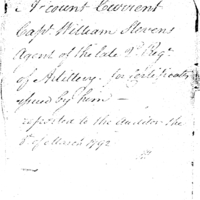 Account Current
Capt. William Stevens
Agent of the late 2d Regt.
of Artillery. for certificates
issued by him —
reported to the Auditor the
of March 1792